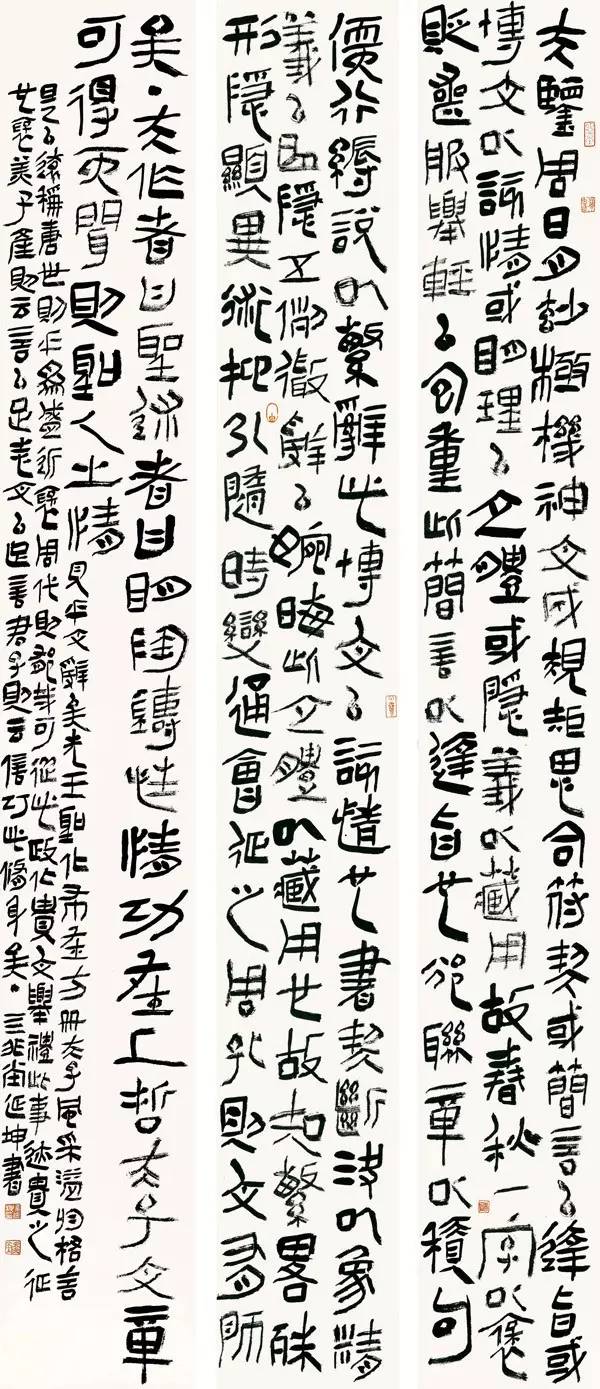 夫鑒周日月妙極機神文成規矩思合符契或簡言以達旨或
博文以該情或明理以立體或隱義以藏用故春秋一字以褒
貶喪服舉輕以包重此簡言以達旨也邠聯章以積句
儒行縟說以繁辭此博文以該情也書契斷決以象精
義以曲隱五例微辭以婉晦此立體以藏用也故知繁畧殊
形隱顯異術抑引隨時變通會征之周孔則文有師
矣夫作者曰聖述者曰明陶鑄性情功在上哲夫子文章
可得而聞則聖人之情見乎文辭矣先王聖化布在方冊夫子風采溢於格言
是以遠稱唐世則乎為盛近褒周代則郁哉可從此政化貴文舉禮此事迹貴之征
也褒美子產則云言以足志文以足言君子則云信巧此修身矣延坤書